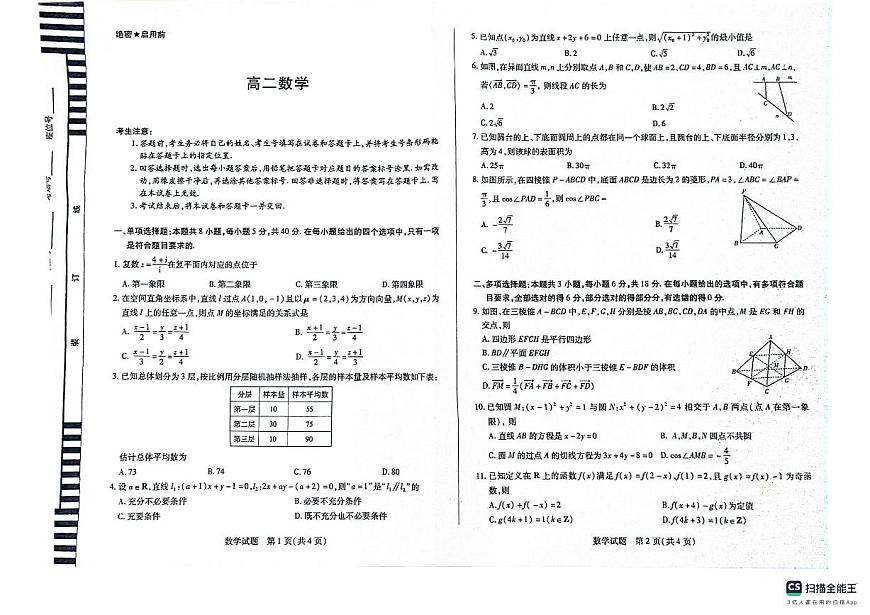 绝密★启用前
高二数学
考生注意:
1. 答题前,考生务必将自己的姓名、考生号填写在试卷和答题卡上,并将考生号条形码粘
贴在答题卡上的指定位置.
2. 回答选择题时,选出每小题答案后,用铅笔把答题卡对应题目的答案标号涂黑.如需改
动,用橡皮擦干净后,再选涂其他答案标号.回答非选择题时,将答案写在答题卡上.写
在本试卷上无效.
3. 考试结束后,将本试卷和答题卡一并交回.
一、单项选择题:本题共 8 小题,每小题 5 分,共 40 分.在每小题给出的四个选项中,只有一项
是符合题目要求的.
1. 复数 z=(4+i)/i 在复平面内对应的点位于
A. 第一象限 B. 第二象限 C. 第三象限 D. 第四象限
2. 在空间直角坐标系中,直线 l 过点 A(1,0,-1)且以 μ=(2,3,4)为方向向量,M(x,y,z)为
直线 l 上的任意一点,则点 M 的坐标满足的关系式是
A. (x-1)/2=y/3=(z+1)/4 B. (x+1)/2=y/3=(z-1)/4
C. (x-1)/3=y/2=(z+1)/4 D. (x-1)/2=y/4=(z+1)/3
3. 已知总体划分为 3 层,按比例用分层随机抽样法抽样,各层的样本量及样本平均数如下表:
分层 样本量 样本平均数
第一层 10 55
第二层 30 75
第三层 10 90
估计总体平均数为
A. 73 B. 74 C. 76 D. 80
4. 设 a∈R,直线 l₁:(a+1)x+y-1=0,l₂:2x+ay-(a+2)=0,则“a=1”是“l₁∥l₂”的
A. 充分不必要条件 B. 必要不充分条件
C. 充要条件 D. 既不充分也不必要条件
数学试题 第 1 页(共 4 页)
5. 已知点(x₀,y₀)为直线 x+2y+6=0 上任意一点,则√((x₀+1)²+y₀²)的最小值是
A. √3 B. 2 C. √5 D. √6
6. 如图,在异面直线 m,n 上分别取点 A,B 和 C,D,使 AB=2,CD=4,BD=6,且 AC⊥m,AC⊥n,
若⟨AB,CD⟩=π/3,则线段 AC 的长为
A. 2 B. 2√2
C. 2√6 D. 6
A B m
C
n D
7. 已知圆台的上、下底面圆周上的点都在同一个球面上,且圆台的上、下底面半径分别为 1,3,
高为 4,则该球的表面积为
A. 25π B. 30π C. 32π D. 40π
8. 如图所示,在四棱锥 P-ABCD 中,底面 ABCD 是边长为 2 的菱形,PA=3,∠ABC=∠BAP=
π/3,且 cos∠PAD=1/6,则 cos∠PBC=
A. -2√7/7 B. 2√7/7
C. -3√7/14 D. 3√7/14
P
A
B
C
D
二、多项选择题:本题共 3 小题,每小题 6 分,共 18 分.在每小题给出的选项中,有多项符合题
目要求,全部选对的得 6 分,部分选对的得部分分,有选错的得 0 分.
9. 如图,在三棱锥 A-BCD 中,E,F,G,H 分别是棱 AB,BC,CD,DA 的中点,M 是 EG 和 FH 的
交点,则
A. 四边形 EFGH 是平行四边形
B. BD∥平面 EFGH
C. 三棱锥 B-DHG 的体积小于三棱锥 E-BDF 的体积
D. FM=1/4(FA+FB+FC+FD)
A
E
H
B
D
F
G
C
10. 已知圆 M:(x-1)²+y²=1 与圆 N:x²+(y-2)²=4 相交于 A,B 两点(点 A 在第一象
限),则
A. 直线 AB 的方程是 x-2y=0 B. A,M,B,N 四点不共圆
C. 圆 M 的过点 A 的切线方程为 3x+4y-8=0 D. cos∠AMB=-4/5
11. 已知定义在 R 上的函数 f(x)满足 f(x)=f(2-x),f(1)=2,且 g(x)=f(x)-1 为奇函
数,则
A. f(x)+f(-x)=2 B. f(x+4)-g(x)为定值
C. g(4k+1)=1(k∈Z) D. f(4k+3)=1(k∈Z)
数学试题 第 2 页(共 4 页)
座位号
线
订
装
CS 扫描全能王
3亿人都在用的扫描App